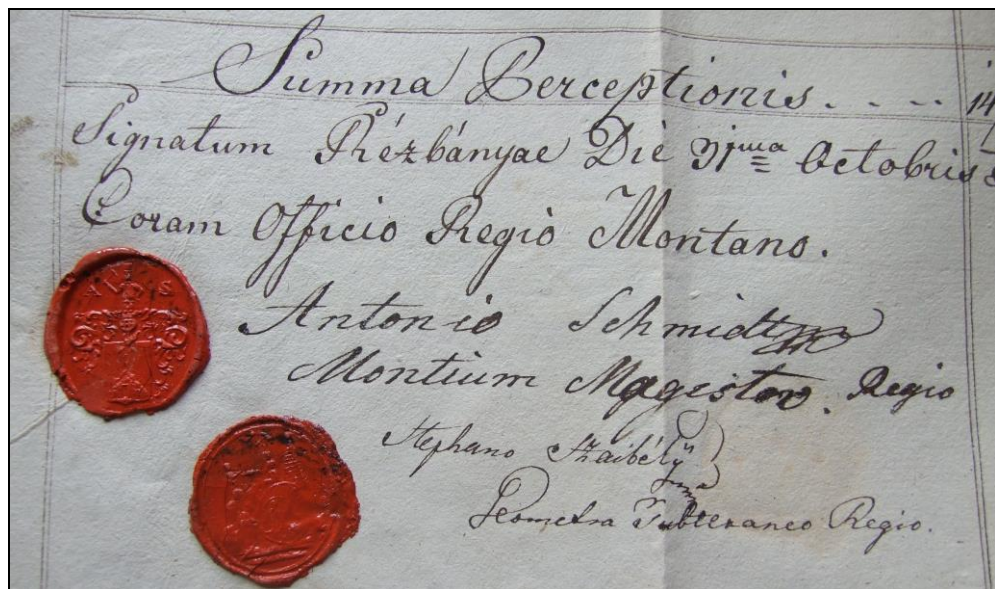 Summa Perceptionis..... 14
Signatum Rézbányae Die 31ma Octobris
Coram Officio Regio Montano.
Antonio Schmidt
Montium Magistro. Regio
Stephano Szaibélÿ
Geometra Subteraneo Regio.